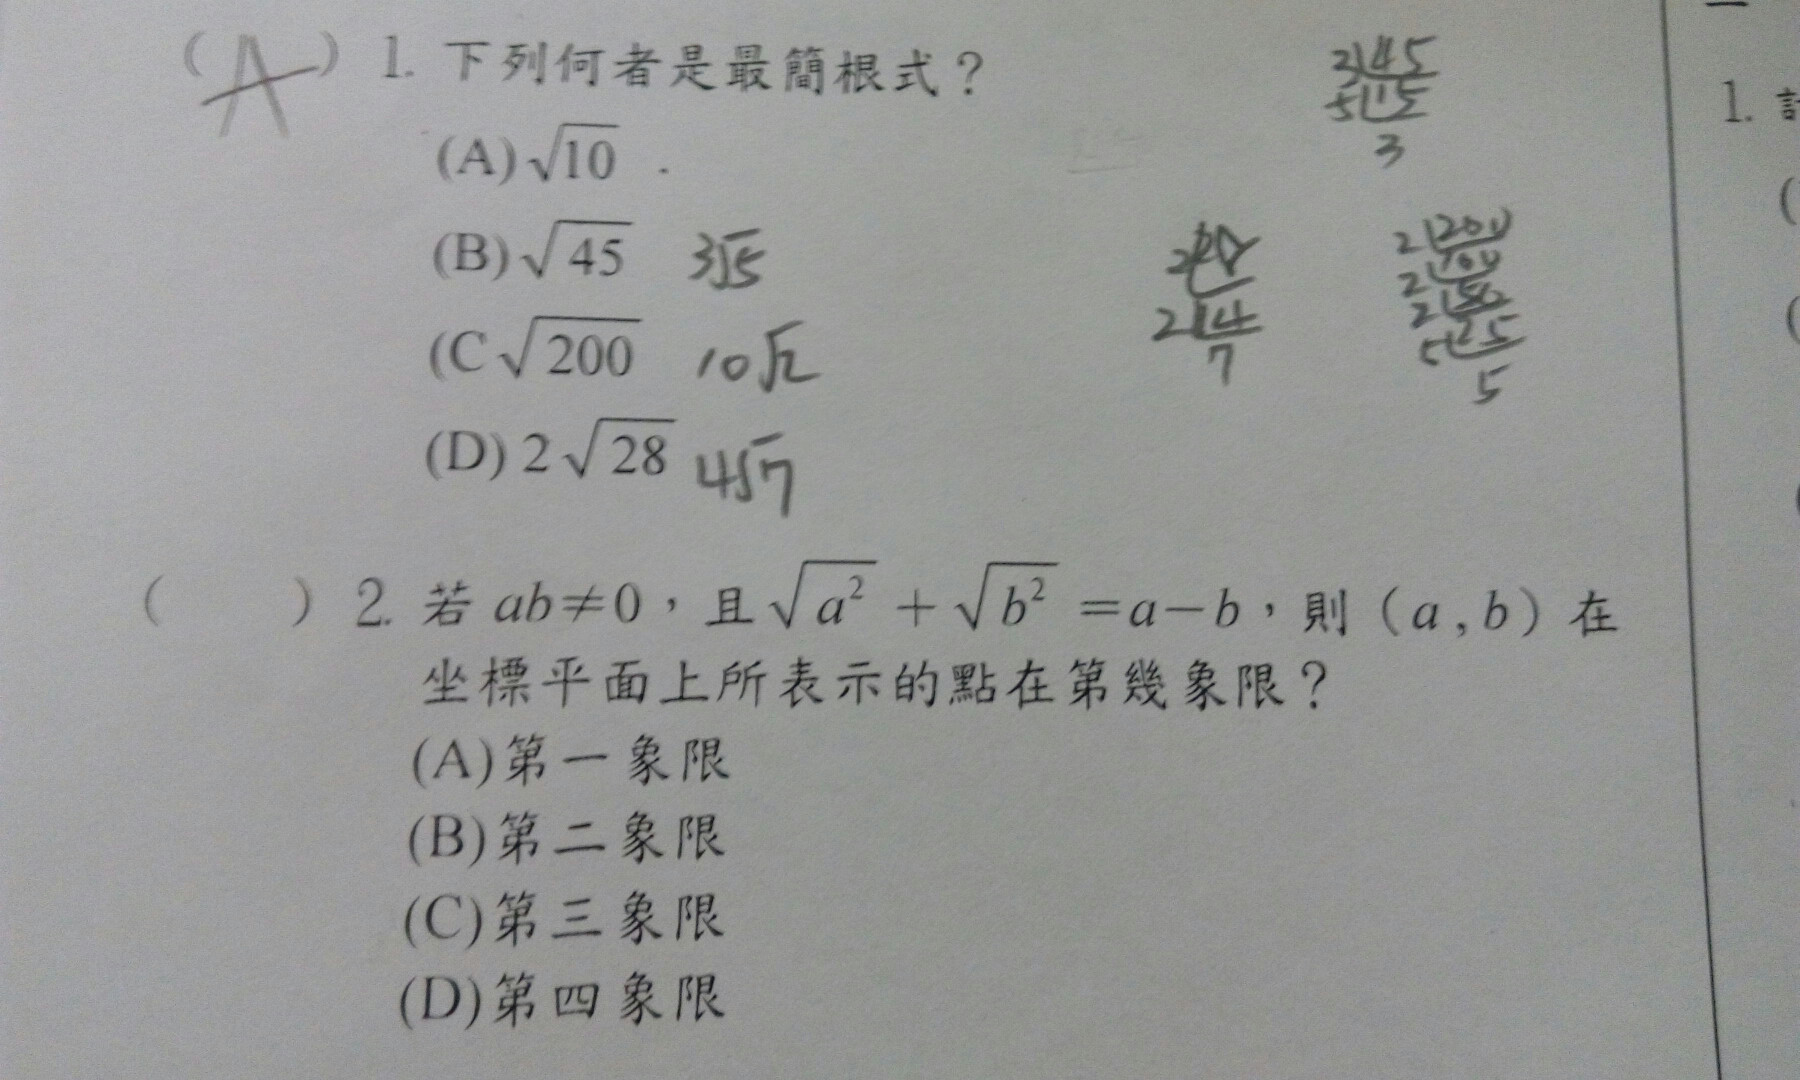 (A) 1. 下列何者是最簡根式？
(A) √10
(B) √45 3√5
(C √200 10√2
(D) 2√28 4√7
3 45
5 15
3
2 28
2 14
7
2 200
2 100
2 50
5 25
5
( ) 2. 若 ab≠0，且√a² + √b² =a−b，則（a , b）在
坐標平面上所表示的點在第幾象限？
(A)第一象限
(B)第二象限
(C)第三象限
(D)第四象限
1. 計